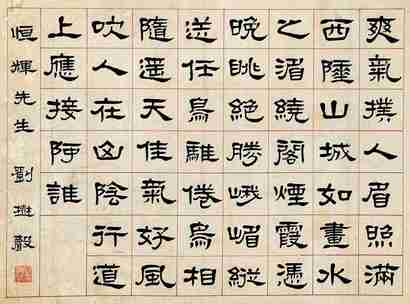 爽氣撲人眉照滿
西陲山城如畫水
之湄繞閣煙霞憑
晚眺絕勝峨嵋縱
送任烏騅倦鳥相
隨遙天佳氣好風
吹人在山陰行道
上應接阿誰
恒輝先生 劉